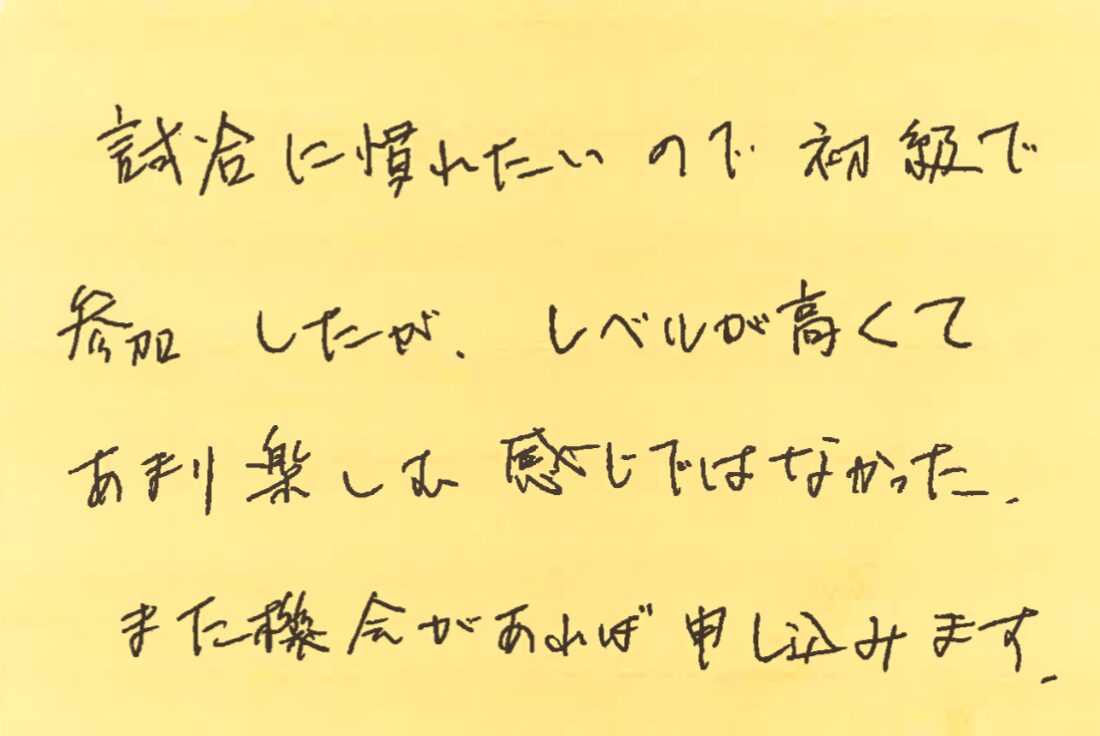 試合に慣れたいので初級で
参加したが、レベルが高くて
あまり楽しむ感じではなかった.
また機会があれば申し込みます.